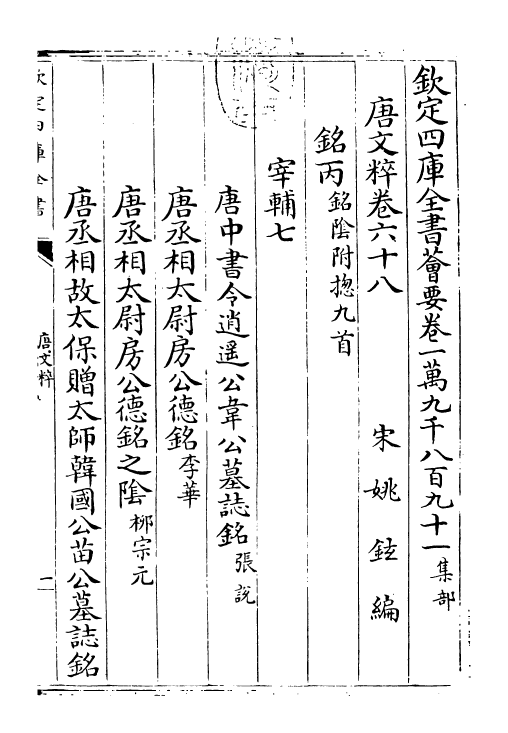 欽定四庫全書薈要卷一萬九千八百九十一集部
唐文粹卷六十八　宋姚鉉編
銘丙銘陰附摠九首
宰輔七
唐中書令逍遥公韋公墓誌銘張說
唐丞相太尉房公德銘李華
唐丞相太尉房公德銘之陰柳宗元
唐丞相故太保贈太師韓國公苗公墓誌銘
欽定四庫全書
唐文粹
一